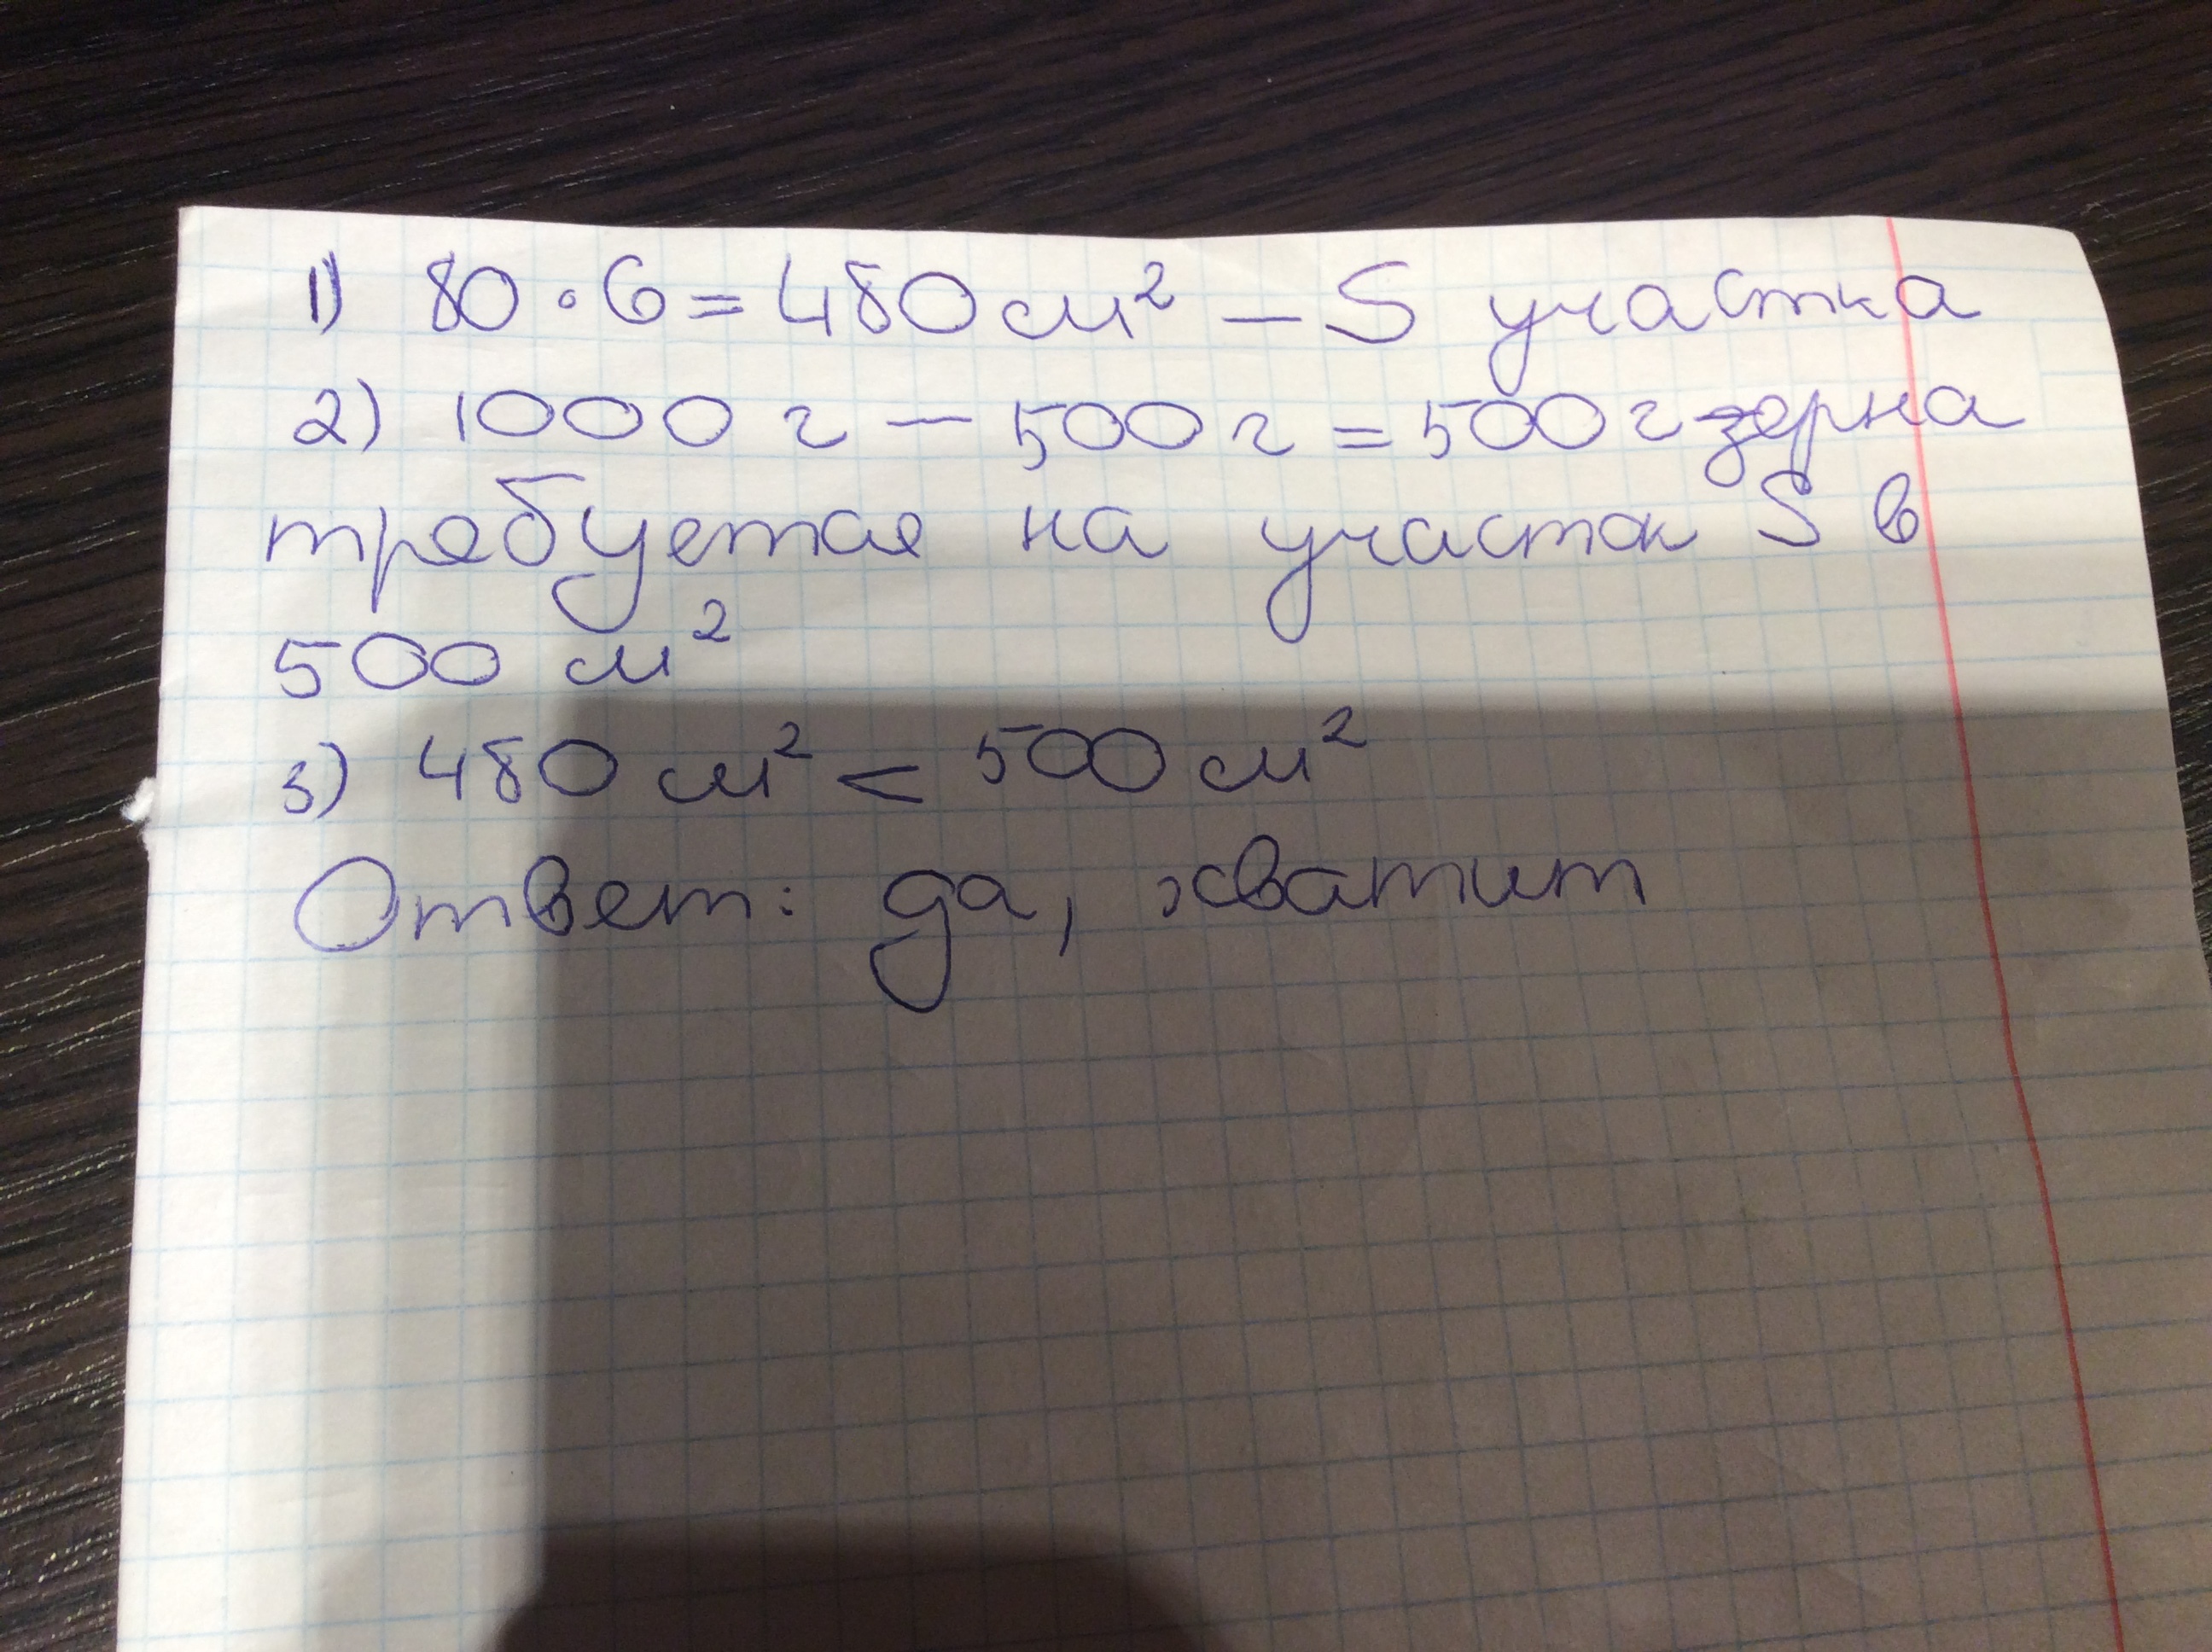 1) 80 · 6 = 480 см² — S участка
2) 1000 г — 500 г = 500 г зерна
требуется на участок S в
500 см²
3) 480 см² < 500 см²
Ответ: да, хватит